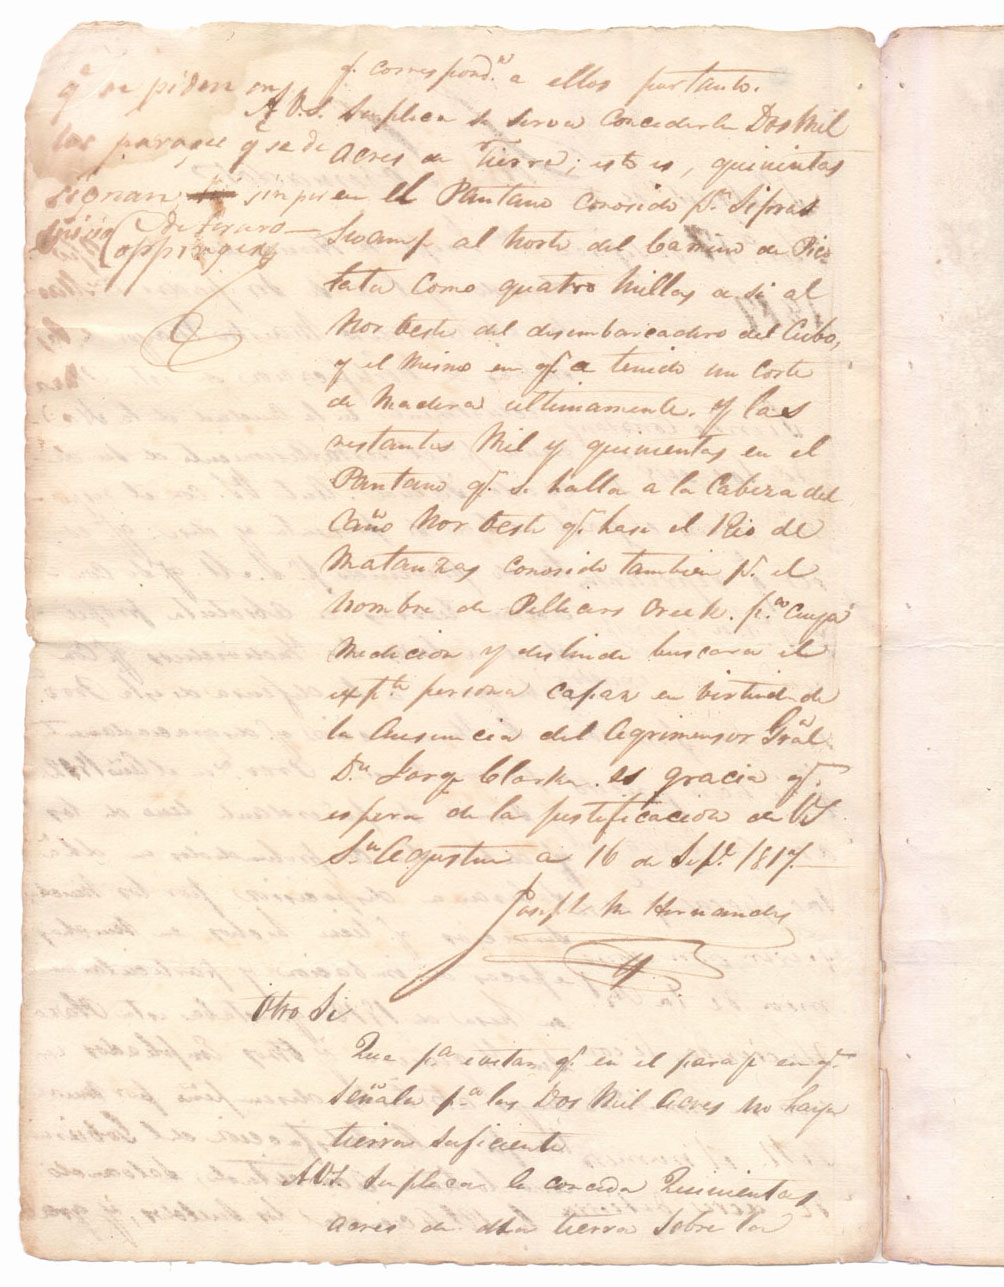 q.e se piden en
los parages q. se de
signan sin per
juicio de tercero
Coppinger
q. correspond.n a ellos portanto.
A V.S. Suplica se sirva concederle Dos Mil
acres de Tierra; esto es, quinientas
en el Pantano conosido p.r
Swamp al Norte del Camino de Pico
lata como quatro Millas a si al
Nor Oeste del desembarcadero del Cubo,
y el mismo en q.e a tenido un corte
de Madera ultimamente. y las
restantes Mil y quinientas en el
Pantano q.e se halla a la Cabeza del
Caño Nor Oeste q.e hase el Rio de
Matanzas conosido tambien p.r el
nombre de Pellicers Creek. p.a cuya
Medicion y deslinde buscara el
exp.te persona capaz en virtud de
la Ausencia del Agrimensor Gral
D.n Jorge Clarke. es gracia q.e
espera de la justificacion de VS
S.n Agustin a 16 de Sep.e 1817.
Joseph M Hernandez
Otro Si
Que p.a evitar q.e en el parage en q.e
señala p.a las Dos Mil Acres no haya
tierra suficiente
A VS. Suplica le conceda Quinientas
acres de dha tierra sobre la